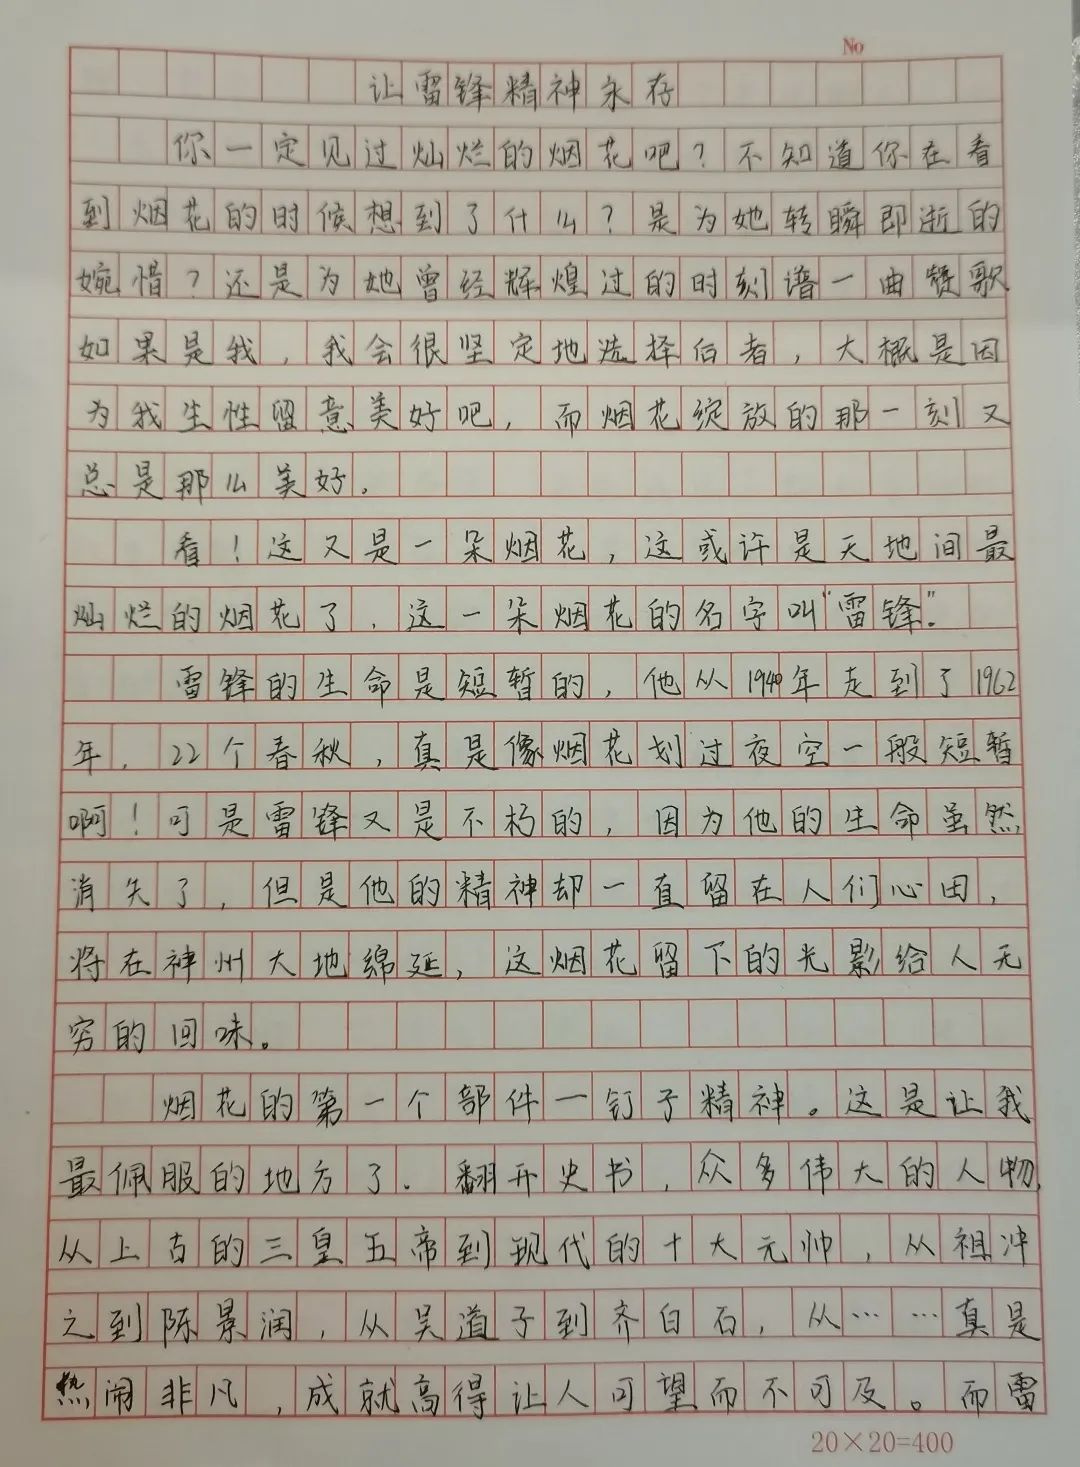 No
让雷锋精神永存
你一定见过灿烂的烟花吧？不知道你在看
到烟花的时候想到了什么？是为她转瞬即逝的
婉惜？还是为她曾经辉煌过的时刻谱一曲赞歌
如果是我，我会很坚定地选择后者，大概是因
为我生性留意美好吧，而烟花绽放的那一刻又
总是那么美好。
看！这又是一朵烟花，这或许是天地间最
灿烂的烟花了，这一朵烟花的名字叫“雷锋”.
雷锋的生命是短暂的，他从1940年走到了1962
年，22个春秋，真是像烟花划过夜空一般短暂
啊！可是雷锋又是不朽的，因为他的生命虽然
消失了，但是他的精神却一直留在人们心田，
将在神州大地绵延，这烟花留下的光影给人无
穷的回味。
烟花的第一个部件一钉子精神。这是让我
最佩服的地方了．翻开史书，众多伟大的人物，
从上古的三皇五帝到现代的十大元帅，从祖冲
之到陈景润，从吴道子到齐白石，从……真是
热闹非凡，成就高得让人可望而不可及。而雷
20×20=400